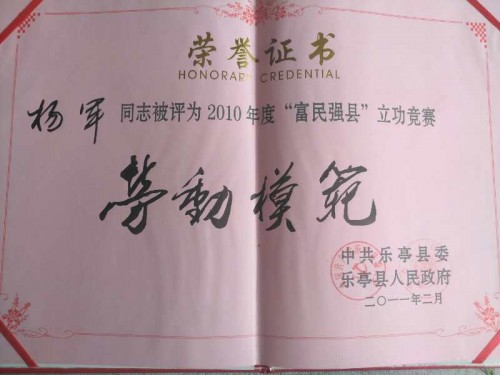 荣誉证书
HONORARY CREDENTIAL
杨军 同志被评为2010年度“富民强县”立功竞赛
劳動模范
中共乐亭县委
乐亭县人民政府
二〇一一年二月